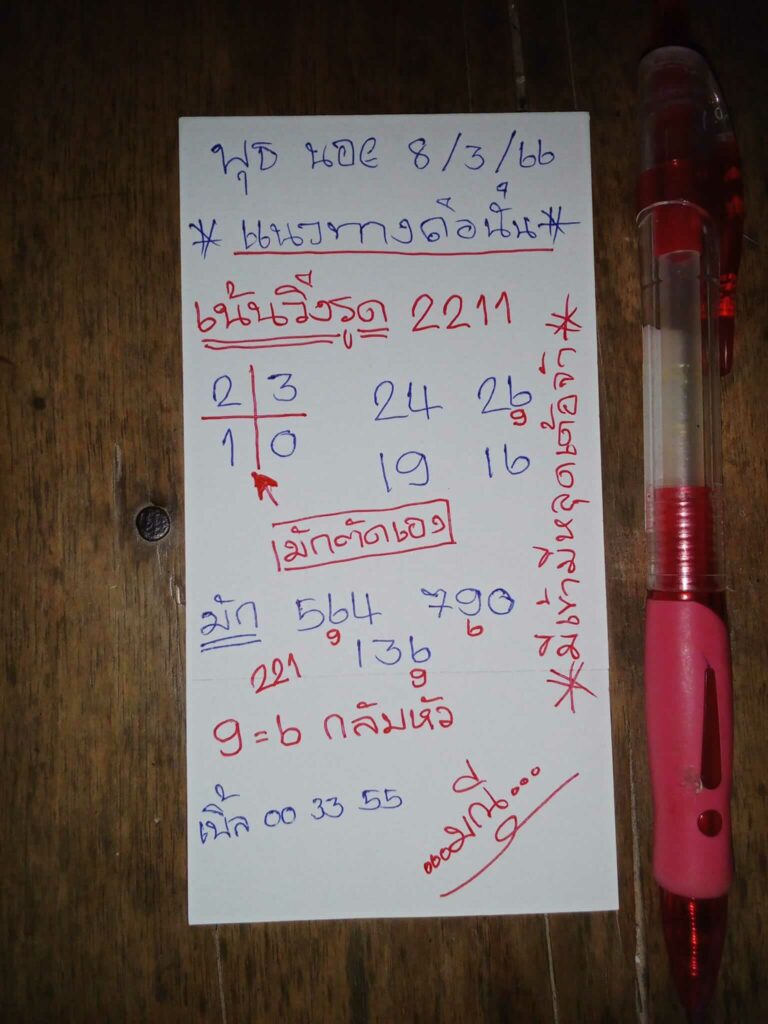 พุธ นอย 8/3/66
* แนวทางคือนั้น *
เน้นวิ่งรูด 2211
2 3 24 26
9
1 0 19 16
มักตัดเอง
มัก 564 790
9 6
221 136
9
9=6 กลับหัว
เบิ้ล 00 33 55
...มณี...
*มีเข้ามีหลุดเด้อจ้า*